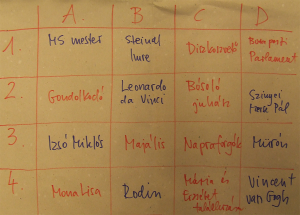 A. B. C D
1. MS mester Steindl Imre Diszkoszvető Budapesti Parlament
2. Gondolkodó Leonardo da Vinci Búsuló juhász Szinyei Merse Pál
3. Izsó Miklós Majális Napraforgók Mürón
4. Mona Lisa Rodin Mária és Erzsébet találkozása Vincent van Gogh